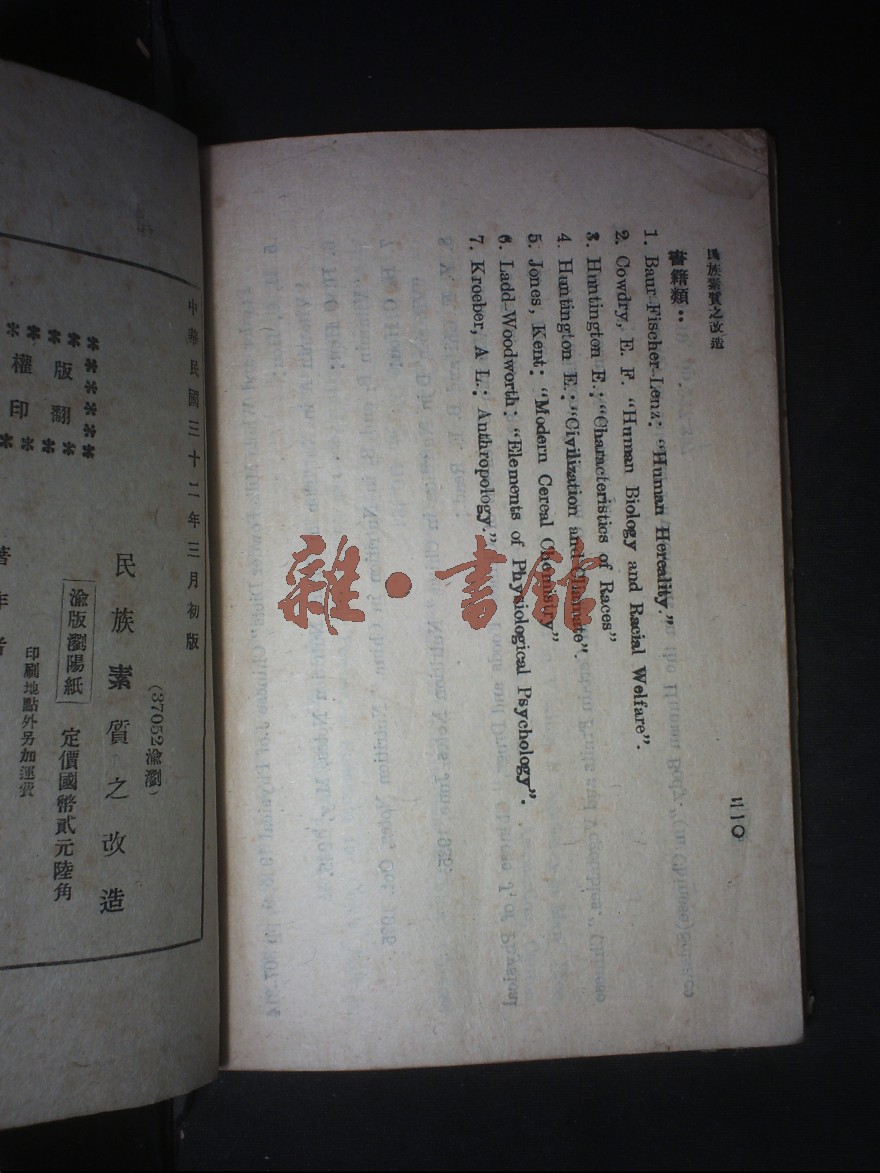 民族素質之改造
二一〇
書籍類：
1. Baur-Fischer-Lenz: "Human Hereality."
2. Cowdry, E. F. "Human Biology and Racial Welfare".
3. Huntington E.: "Characteristics of Races"
4. Huntington E.: "Civilization and Climate".
5. Jones, Kent: "Modern Cereal Chemistry"
6. Ladd-Woodworth: "Elements of Physiological Psychology".
7. Kroeber, A L.: Anthropology."
雜·書館
中華民國三十二年三月初版
(37052渝瀏)
民族素質之改造
渝版瀏陽紙 定價國幣貳元陸角
印刷地點外另加運費
版翻
權印
著作者